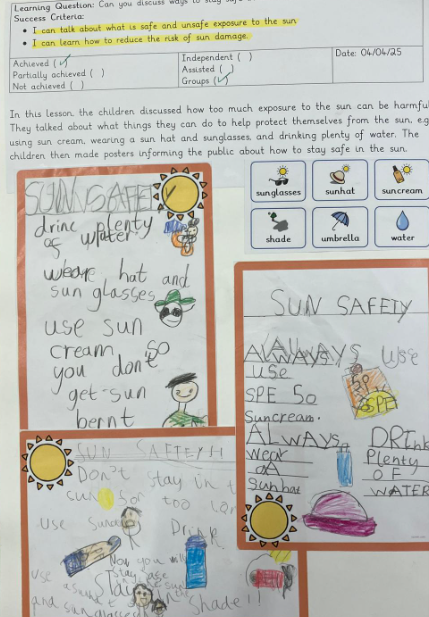 Learning Question: Can you discuss ways to stay safe
Success Criteria:
I can talk about what is safe and unsafe exposure to the sun
I can learn how to reduce the risk of sun damage.
Achieved (✓)
Partially achieved ( )
Not achieved ( )
Independent ( )
Assisted ( )
Groups (✓)
Date: 04/04/25
In this lesson, the children discussed how too much exposure to the sun can be harmful
They talked about what things they can do to help protect themselves from the sun, e.g
using sun cream, wearing a sun hat and sunglasses, and drinking plenty of water. The
children then made posters informing the public about how to stay safe in the sun.
sunglasses
sunhat
suncream
shade
umbrella
water
SUN SAFE
drinc plenty
of water
weare hat and
sun glasses
use sun
cream so
you don't
get sun
bernt
SUN SAFETY
ALWAYS
use
SPE 50
Suncream.
ALWAYS
wear
a
Sunhat
use
50
SPE
DRINK
Plenty
OF
WATER
SUN SAFTEY!!
Don't stay in t
sun for too
use
Drink
Now you will
Stay
use
Stay in the
and sunglasses
Shade!!